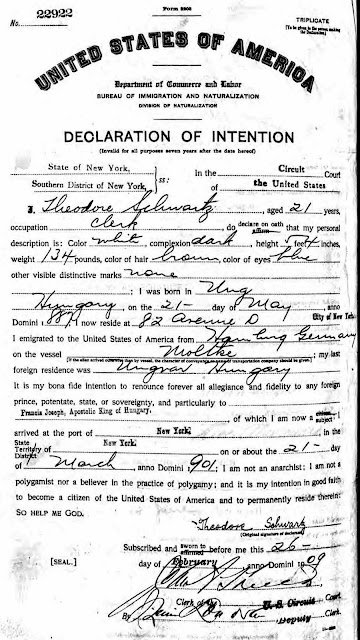 No. 22922
Form 2203
TRIPLICATE
[To be given to the person making the Declaration]
UNITED STATES OF AMERICA
Department of Commerce and Labor
BUREAU OF IMMIGRATION AND NATURALIZATION
DIVISION OF NATURALIZATION
DECLARATION OF INTENTION
(Invalid for all purposes seven years after the date hereof)
State of New York,
Southern District of New York,
ss:
In the Circuit Court
of the United States
I, Theodore Schwartz, aged 21 years,
occupation clerk, do declare on oath affirm that my personal
description is: Color white, complexion dark, height 5 feet 4 inches,
weight 134 pounds, color of hair brown, color of eyes blue
other visible distinctive marks none
; I was born in Ung
Hungary, on the 21- day of May, anno
Domini 1887; I now reside at 82 Avenue D City of New York
I emigrated to the United States of America from Hamburg Germany
on the vessel Moltke; my last
[If the alien arrived otherwise than by vessel, the character of conveyance or name of transportation company should be given]
foreign residence was Ungvar Hungary
It is my bona fide intention to renounce forever all allegiance and fidelity to any foreign
prince, potentate, state, or sovereignty, and particularly to
Francis Joseph, Apostolic King of Hungary,
, of which I am now a citizen subject;
arrived at the port of New York, in the
State Territory District of New York on or about the 21- day
of March, anno Domini 1901; I am not an anarchist; I am not a
polygamist nor a believer in the practice of polygamy; and it is my intention in good faith
to become a citizen of the United States of America and to permanently reside therein:
SO HELP ME GOD.
Theodore Schwartz
(Original signature of declarant)
Subscribed and sworn to affirmed before me this 26-
[SEAL.]
day of February, anno Domini 1909
Clerk of the U. S. Circuit Court.
By Deputy Clerk.